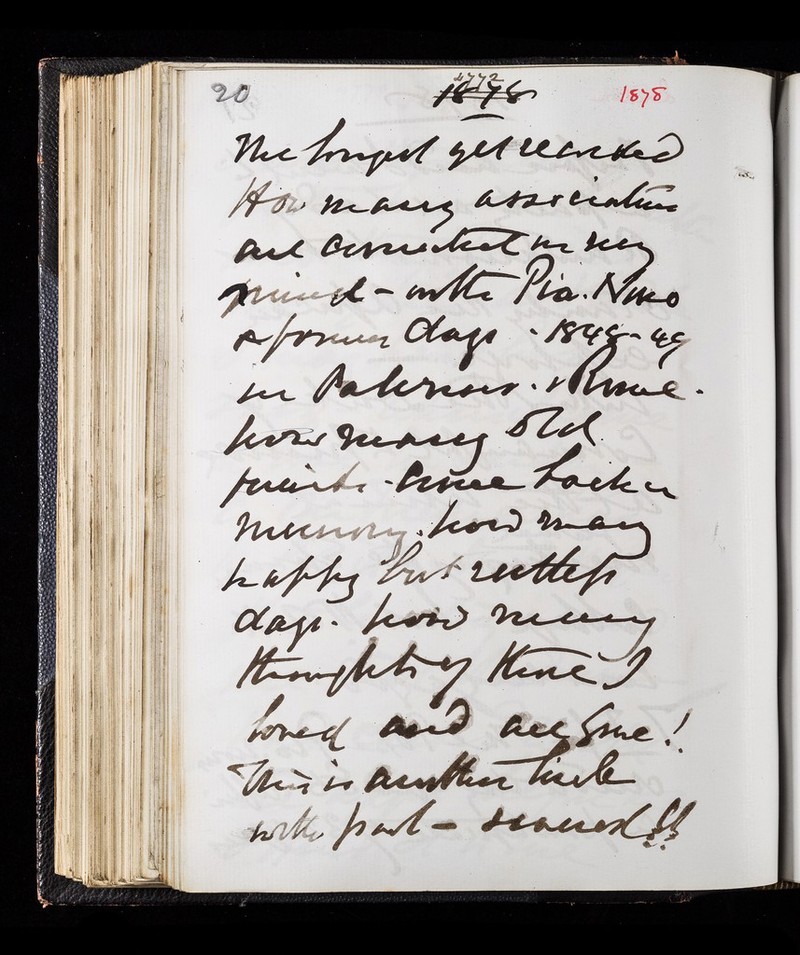 20 1878 1878
The longest yet recorded
How many associations
are connected in my
mind - with Pia. Nino
& former days - 1848-49
in Palermo. & Rome.
how many old
friends - come back in
memory. how many
happy but restless
days. how many
thoughts of those I
loved and all gone!
This is another link
with past - severed!!